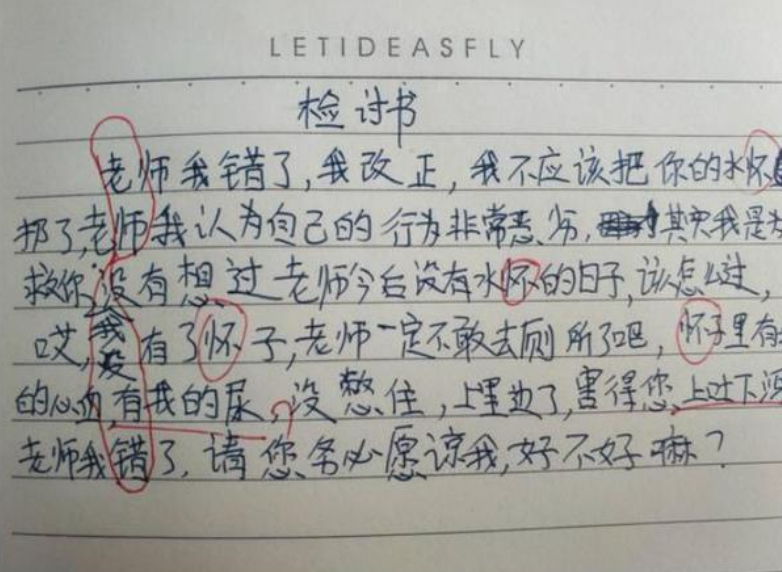 LETIDEASFLY
检讨书
老师我错了,我改正,我不应该把你的水怀
了,老师我认为自己的行为非常恶劣,其实我是为
救你,没有想过老师今后没有水怀的日子,该怎么过,
哎,我没有了怀子,老师一定不敢去厕所了吧,怀子里有
的心血,有我的尿,没憋住,上里边了,害得您上吐下泻
老师我错了,请您务必愿谅我,好不好嘛?